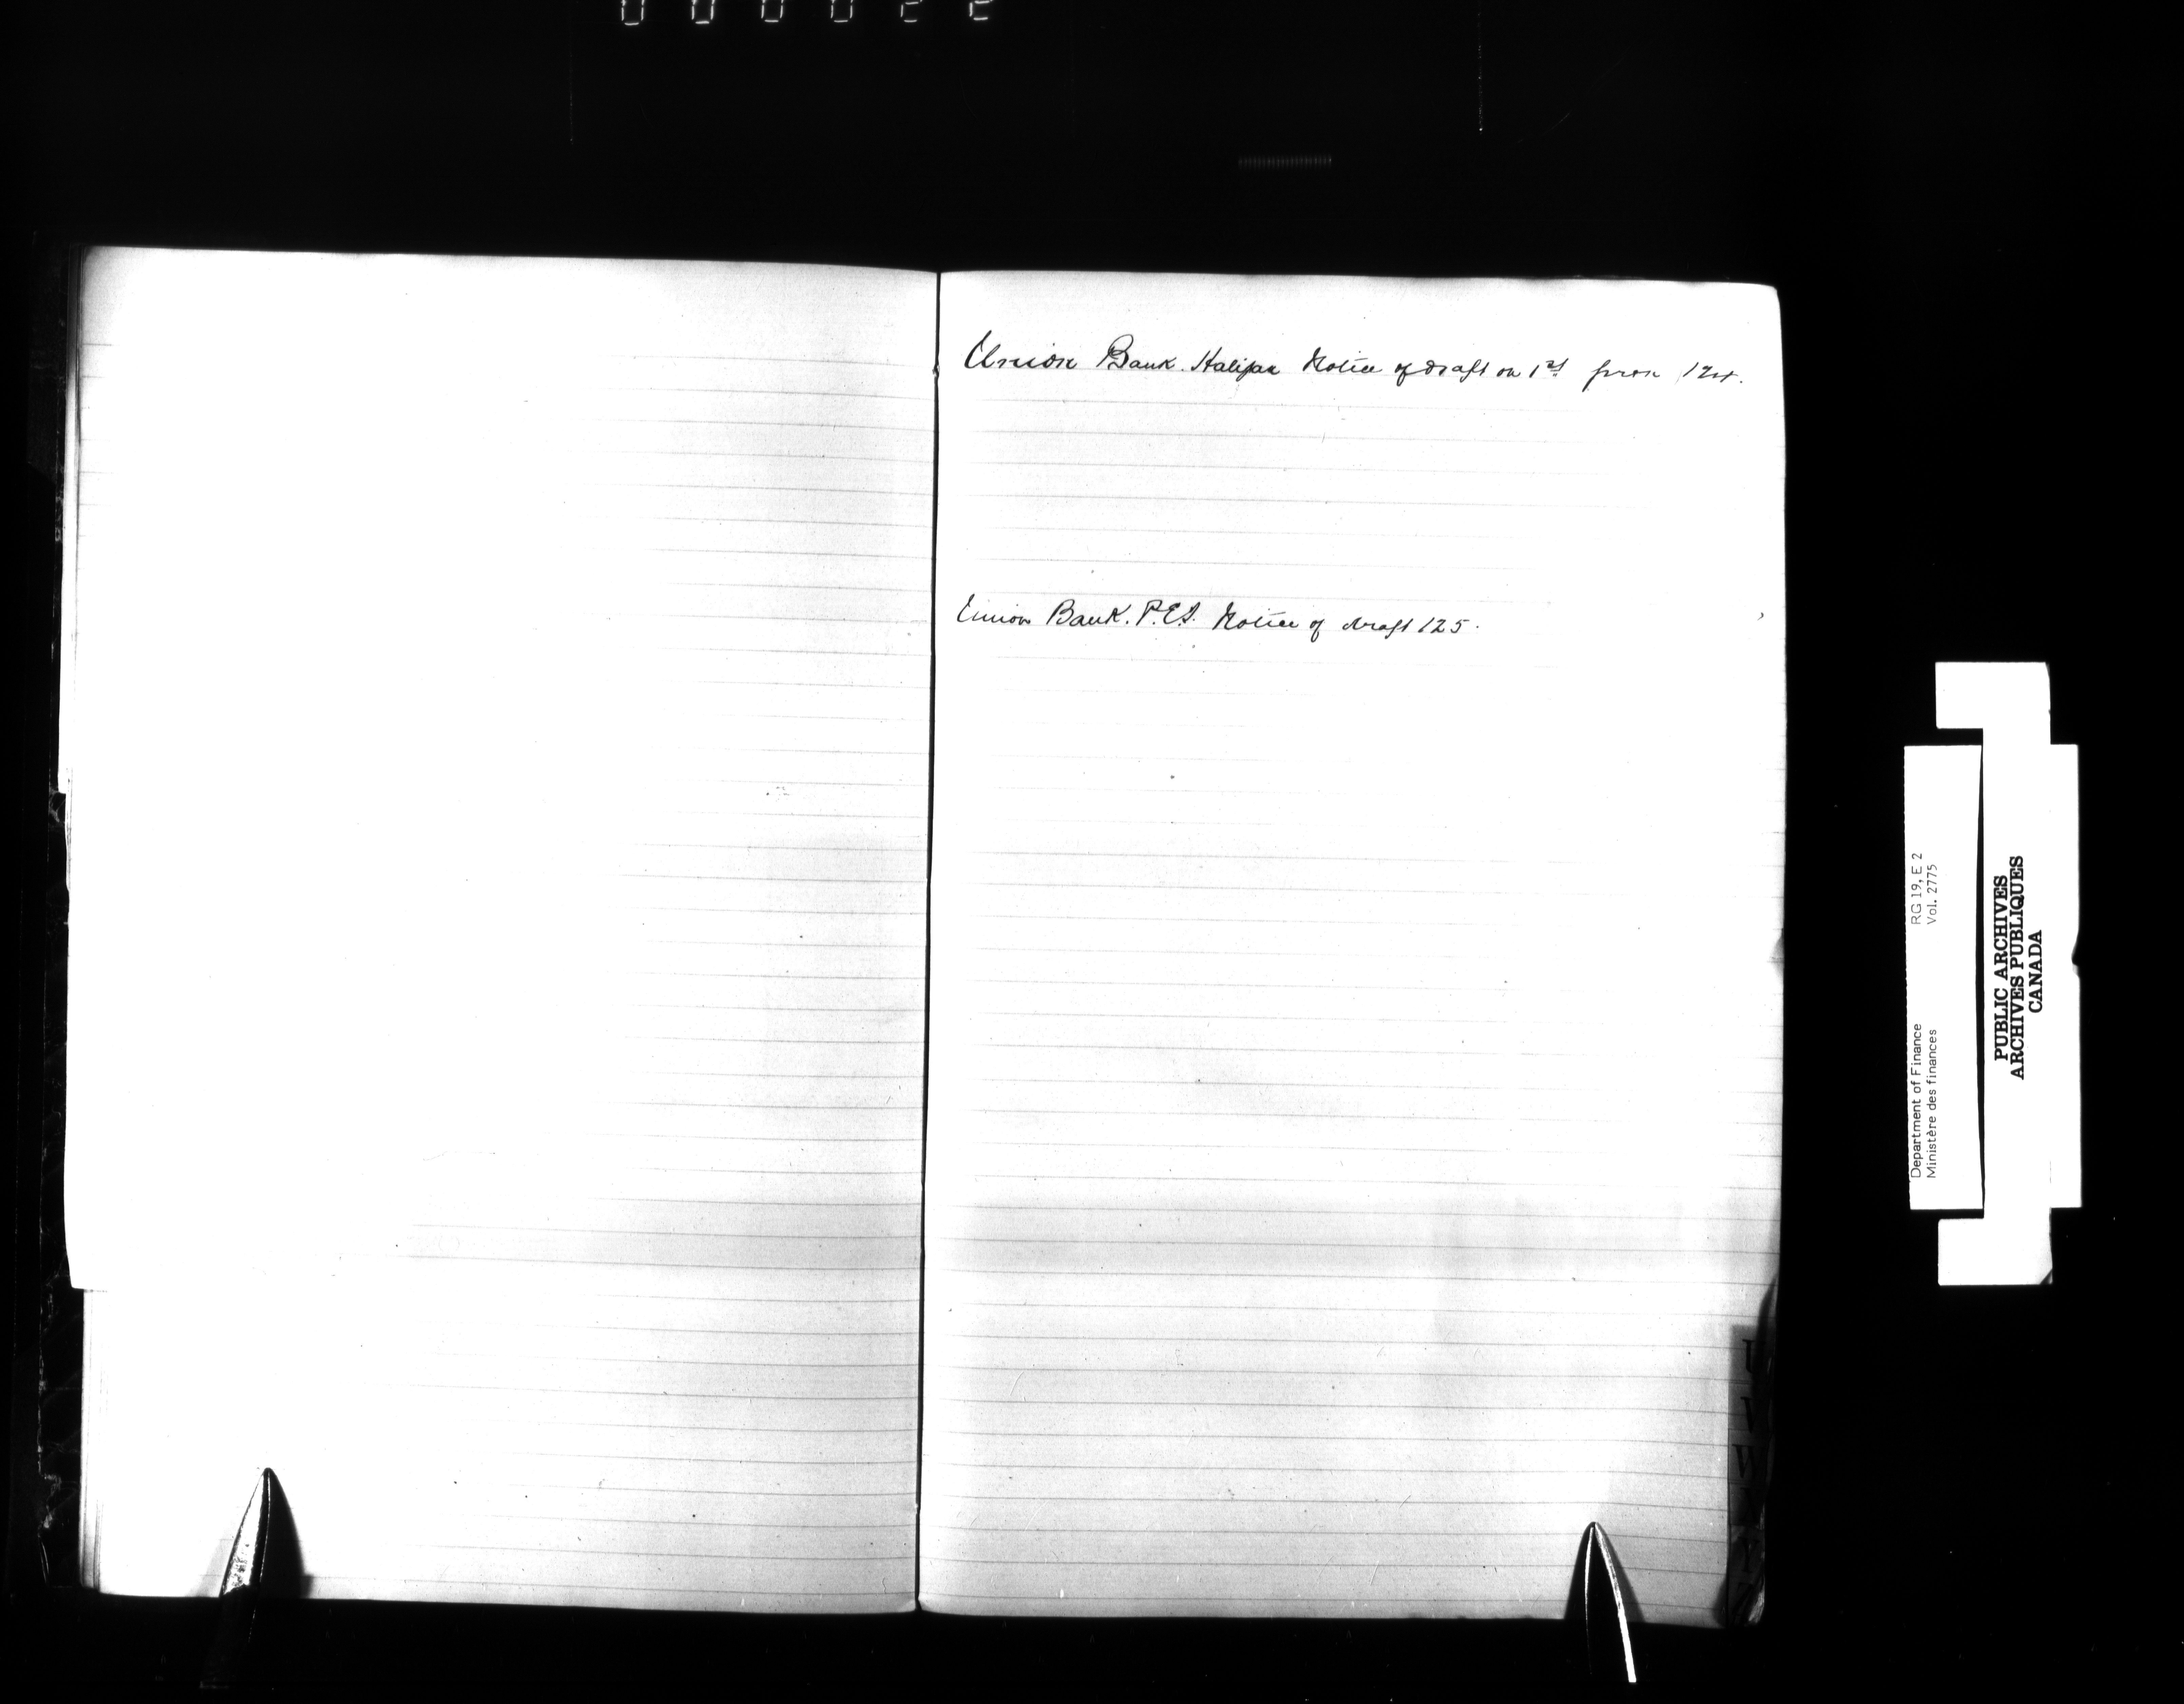 Union Bank. Halifax Notice of draft on 1st prox 124.
Union Bank. P.E.I. Notice of draft 125.
Department of Finance RG 19, E 2
Ministère des finances Vol. 2775
PUBLIC ARCHIVES
ARCHIVES PUBLIQUES
CANADA
V
W